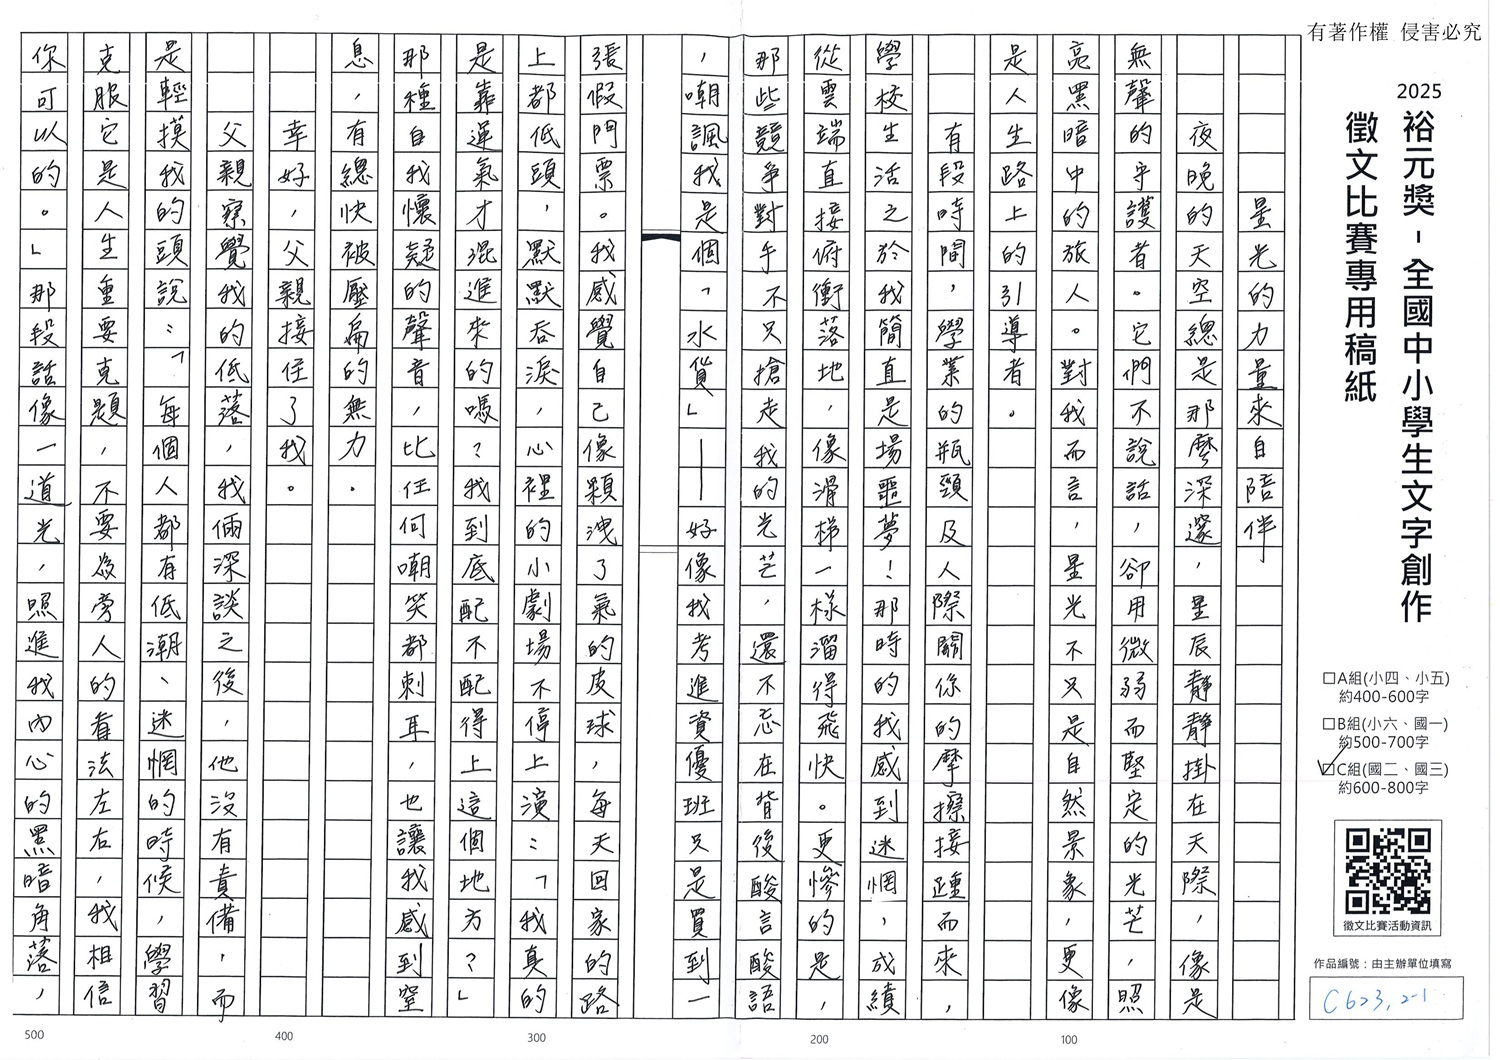 有著作權 侵害必究
2025
裕元獎-全國中小學生文字創作
徵文比賽專用稿紙
□A組(小四、小五)
約400-600字
□B組(小六、國一)
約500-700字
☑C組(國二、國三)
約600-800字
徵文比賽活動資訊
作品編號：由主辦單位填寫
C623,2-1
星光的力量來自陪伴
夜晚的天空總是那麼深邃，星辰靜靜掛在天際，像是
無聲的守護者。它們不說話，卻用微弱而堅定的光芒，照
亮黑暗中的旅人。對我而言，星光不只是自然景象，更像
是人生路上的引導者。
有段時間，學業的瓶頸及人際關係的摩擦接踵而來，
學校生活之於我簡直是場噩夢！那時的我感到迷惘，成績
從雲端直接俯衝落地，像滑梯一樣溜得飛快。更慘的是，
那些競爭對手不只搶走我的光芒，還不忘在背後酸言酸語
，嘲諷我是個「水貨」——好像我考進資優班只是買到一
張假門票。我感覺自己像顆洩了氣的皮球，每天回家的路
上都低頭，默默吞淚，心裡的小劇場不停上演：「我真的
是靠運氣才混進來的嗎？我到底配不配得上這個地方？」
那種自我懷疑的聲音，比任何嘲笑都刺耳，也讓我感到窒
息，有總快被壓扁的無力。
幸好，父親接住了我。
父親察覺我的低落，我倆深談之後，他沒有責備，而
是輕摸我的頭說：「每個人都有低潮、迷惘的時候，學習
克服它是人生重要克題，不要為旁人的看法左右，我相信
你可以的。」那段話像一道光，照進我內心的黑暗角落，
100
200
300
400
500